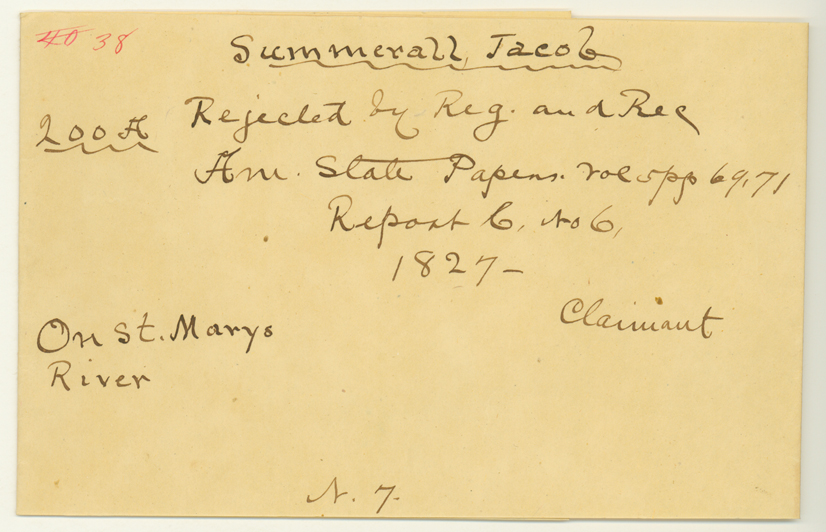 40 38
Summerall, Jacob
200 A
Rejected by Reg. and Rec
Am. State Papers. vol 5 pp 69, 71
Report C, No 6,
1827-
Claimant
On St. Marys
River
N. 7.